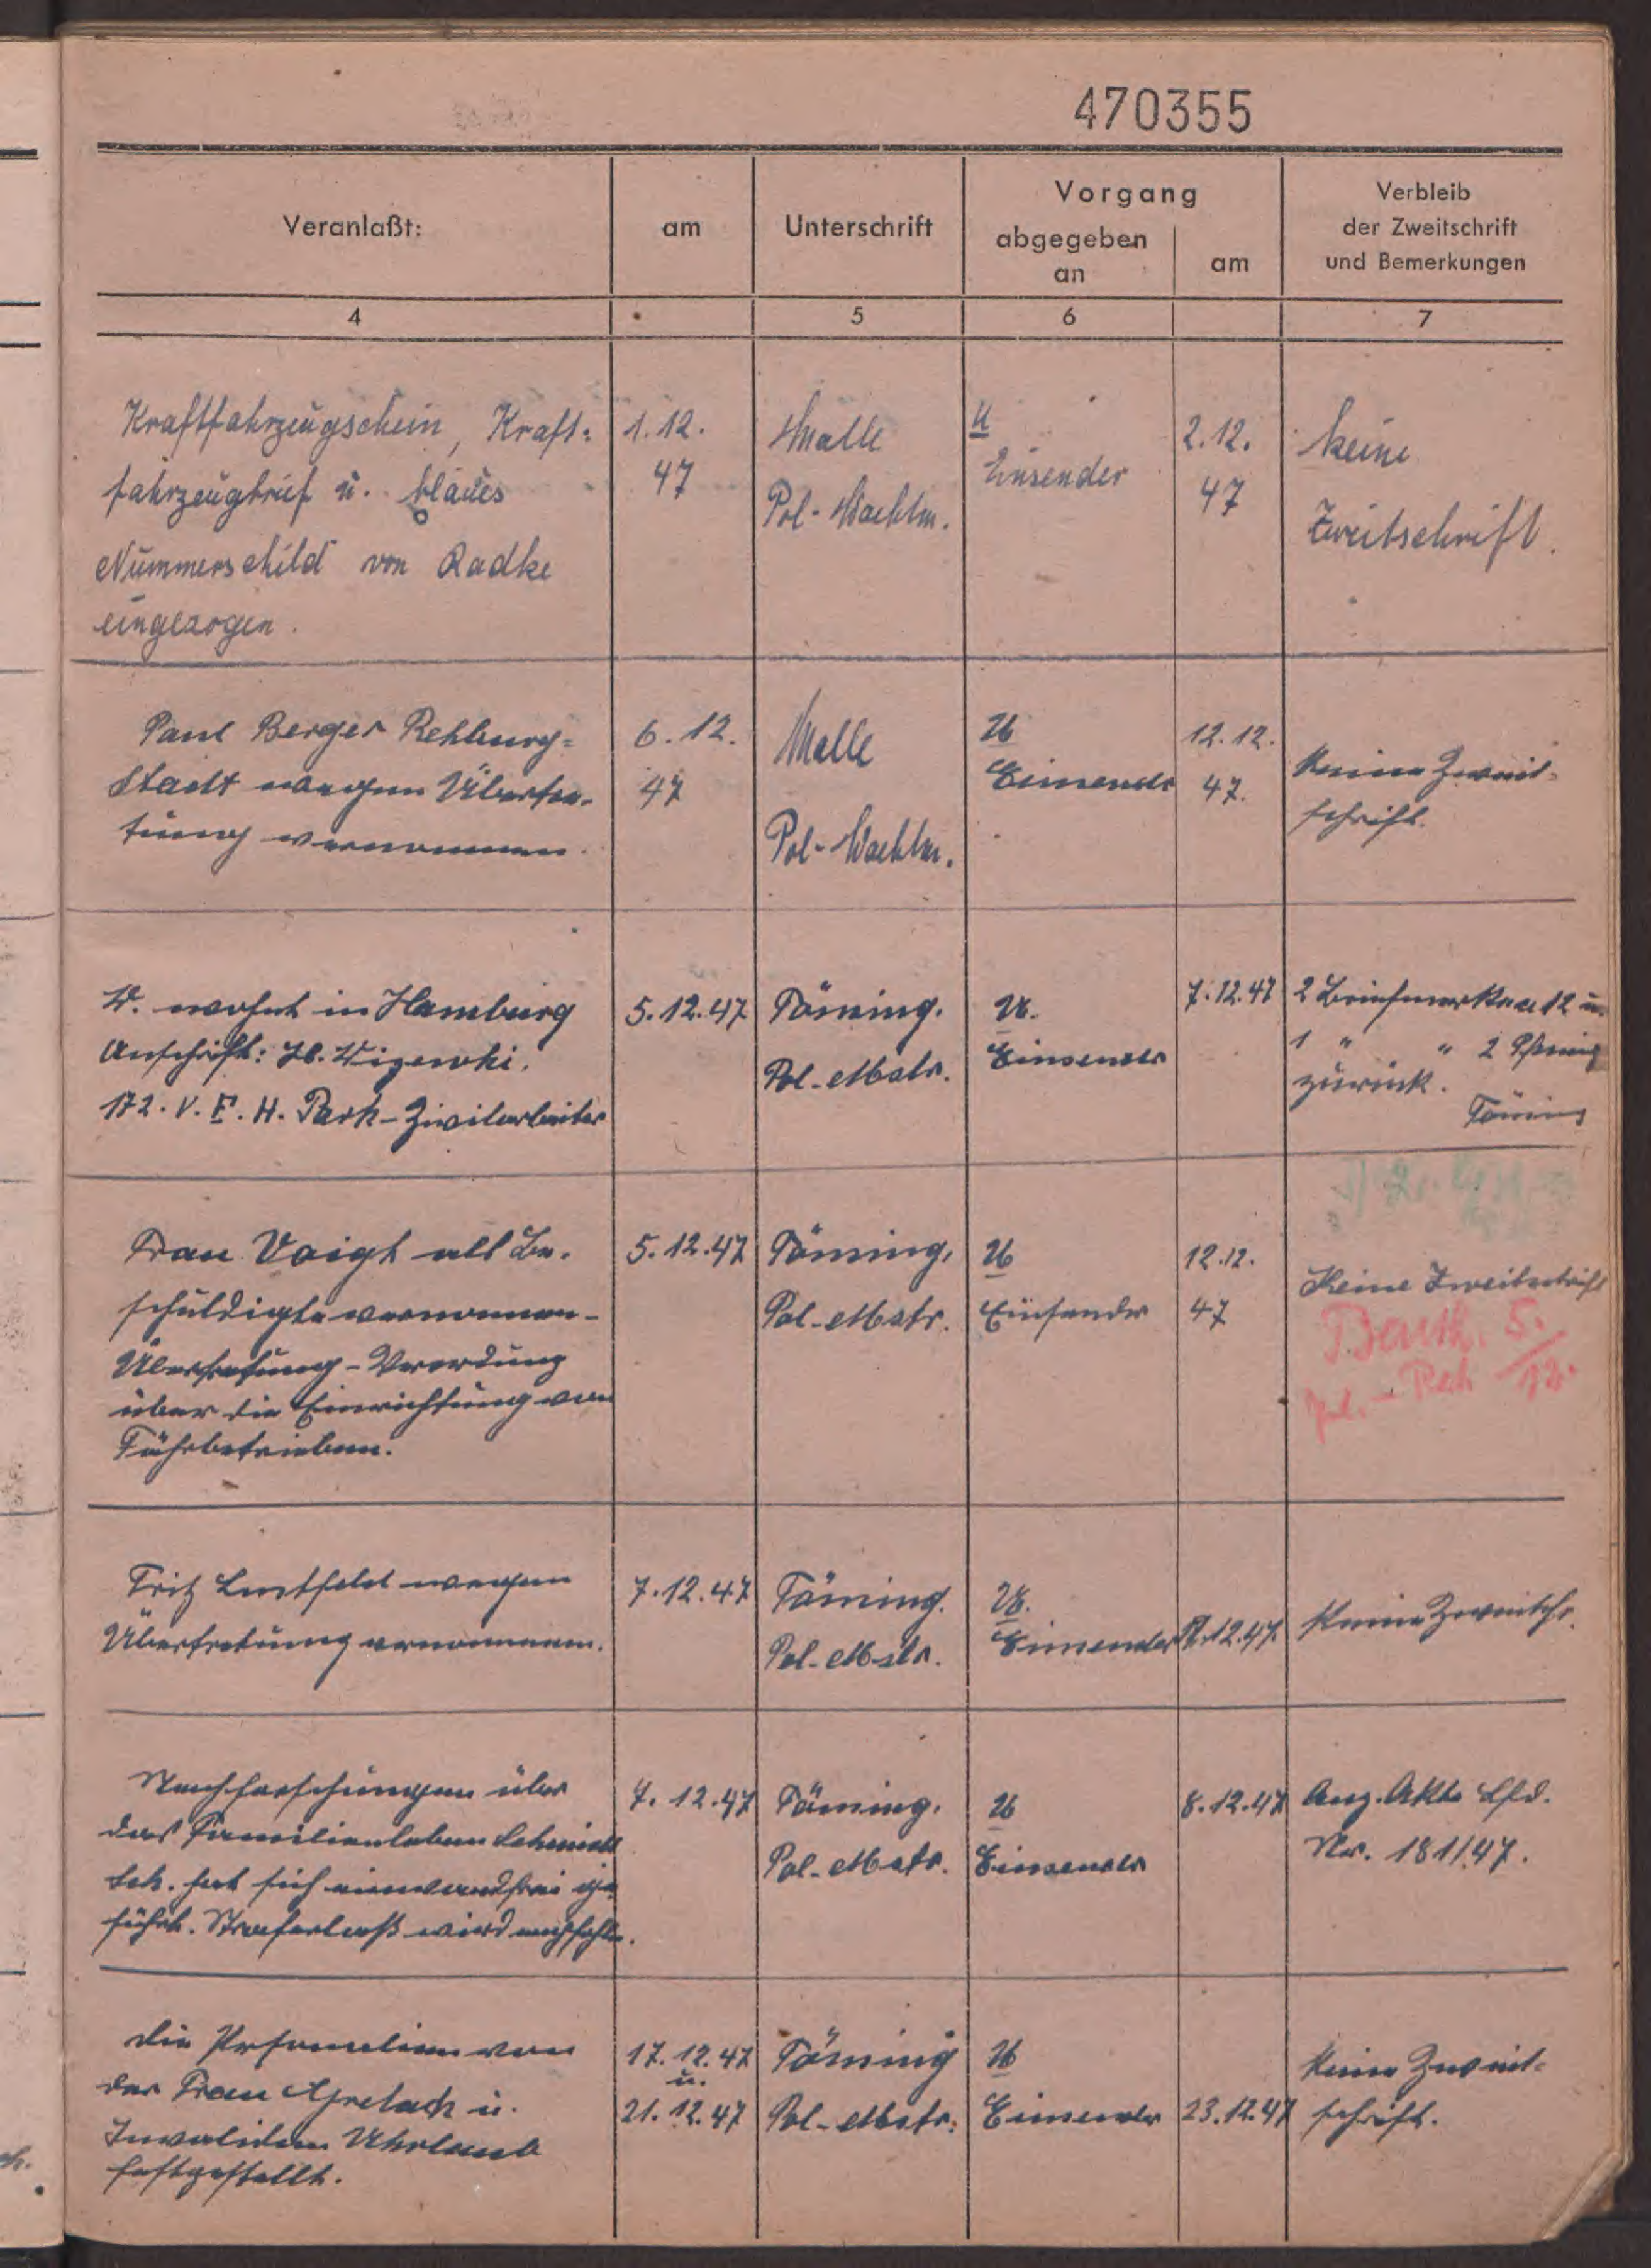 470355
Veranlaßt:
am
Unterschrift
Vorgang
abgegeben
an
am
Verbleib
der Zweitschrift
und Bemerkungen
4
5
6
7
Kraftfahrzeugschein, Kraft=
fahrzeugbrief u. blaues
Nummerschild von Radke
eingezogen.
1.12.
47
Malle
Pol-Wachtm.
U
Einsender
2.12.
47
keine
Zweitschrift.
Paul Berger Rehburg=
Stadt wegen Übertre-
tung vernommen.
6.12.
47
Malle
Pol-Wachtm.
U
Einsender
12.12.
47.
Keine Zweit-
schrift.
W. wohnt in Hamburg
Anschrift: H.
172. V. E. H. Park-Zivilarbeiter
5.12.47
Töning.
Pol.-Mstr.
U.
Einsender
7.12.47
2 Briefmarken a 12 u.
1 " " 2 Pfennig
zurück.
Töning
Frau Voigt als Be-
schuldigte vernommen-
Übertretung-Verordung
über die Einrichtung von
Fährbetrieben.
5.12.47
Töning.
Pol-Mstr.
U
Einsender
12.12.
47
Keine Zweitschrift
5.
12.
Fritz Lustfeld wegen
Übertretung vernommen.
7.12.47
Töning.
Pol-Mstr.
U.
Einsender
12.47.
Keine Zweitschr.
Nachforschungen über
das Familienleben Schmidt
Sch. hat sich einwandfrei ge-
führt. Straferlaß wird empfohlen.
7.12.47
Töning.
Pol-Mstr.
U
Einsender
8.12.47
Anz. Akte Lfd.
Nr. 181/47.
Die Personalien von
der Frau u.
Invaliden
festgestellt.
17.12.47
u.
21.12.47
Töning
Pol-Mstr.
U
Einsender
23.12.47
Keine Zweit-
schrift.